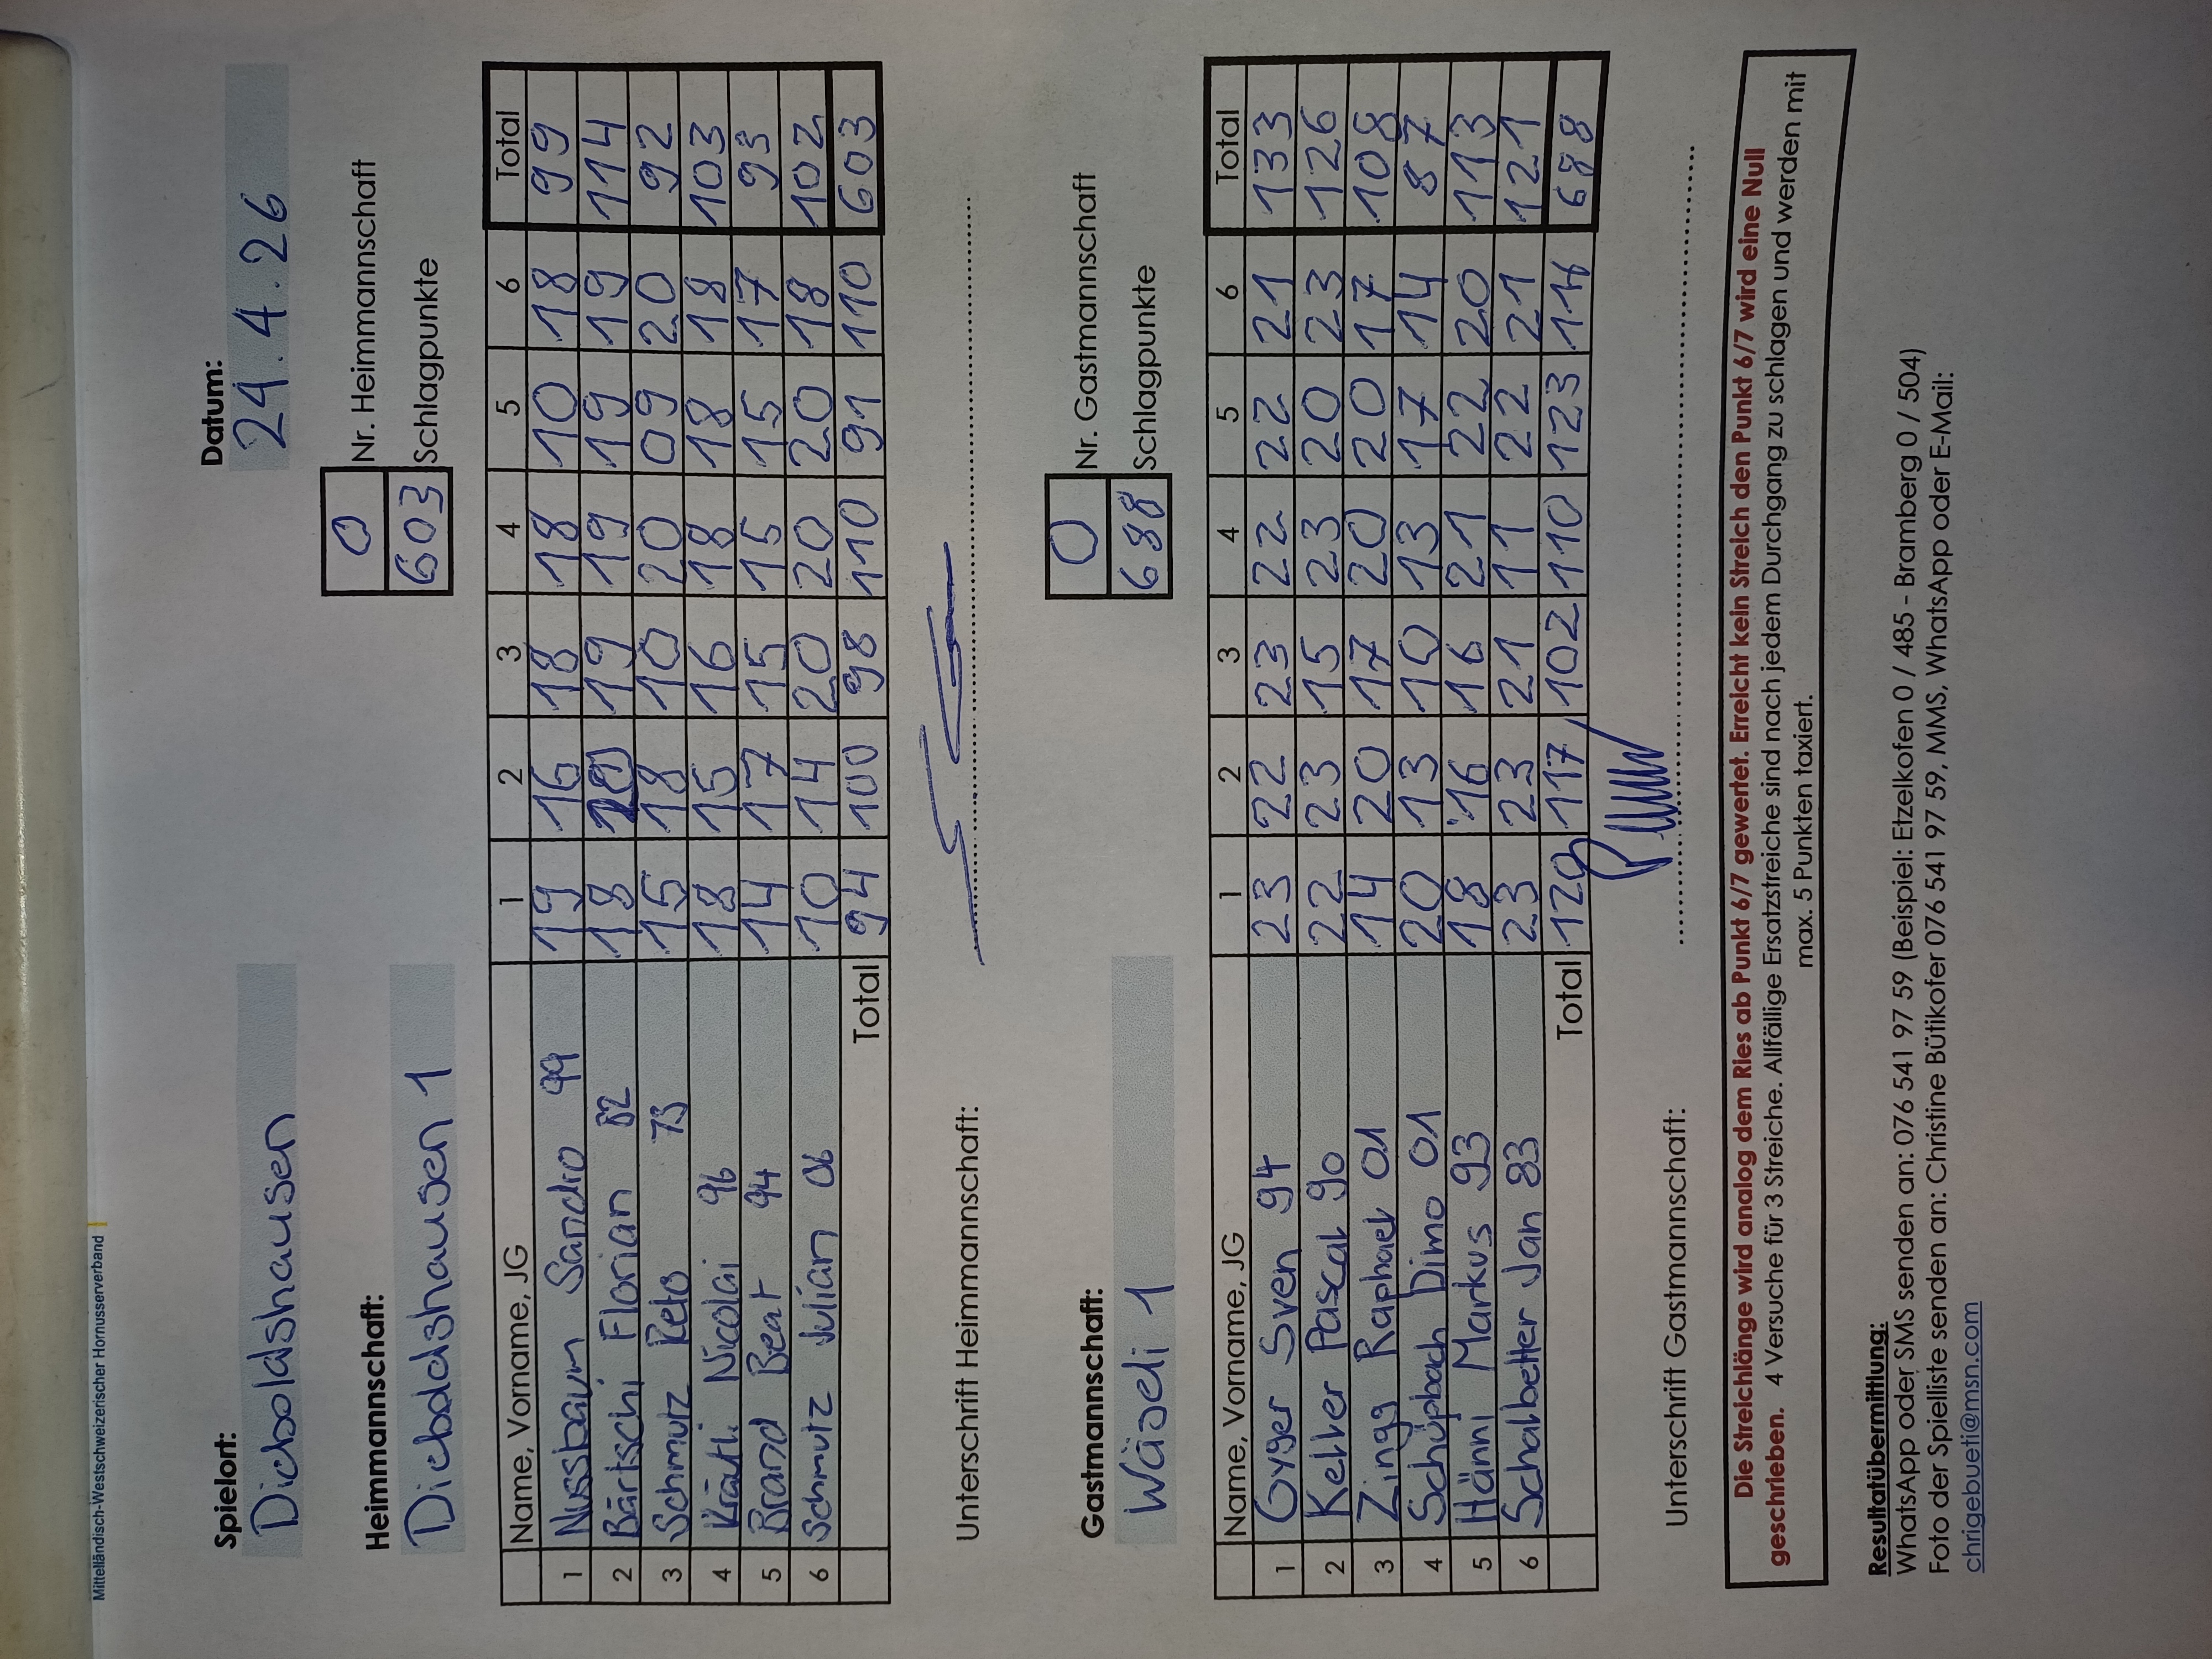 Mittelländisch-Westschweizerischer Hornusserverband
Spielort: Datum:
Dieboldshausen 24.4.26
Heimmannschaft: 0 Nr. Heimmannschaft
Dieboldshausen 1 603 Schlagpunkte
Name, Vorname, JG 1 2 3 4 5 6 Total
1 Nussbaum Sandro 99 19 16 18 18 10 18 99
2 Bärtschi Florian 82 18 20 19 19 19 19 114
3 Schmutz Reto 73 15 18 10 20 09 20 92
4 Krähli Nicolai 96 18 15 16 18 18 18 103
5 Brand Beat 94 14 17 15 15 15 17 93
6 Schmutz Julian 06 10 14 20 20 20 18 102
Total 94 100 98 110 91 110 603
Unterschrift Heimmannschaft:
Gastmannschaft: 0 Nr. Gastmannschaft
Wäseli 1 688 Schlagpunkte
Name, Vorname, JG 1 2 3 4 5 6 Total
1 Gyger Sven 94 23 22 23 22 22 21 133
2 Keller Pascal 90 22 23 15 23 20 23 126
3 Zingg Raphael 01 14 20 17 20 20 17 108
4 Schüpbach Dimo 01 20 13 10 13 17 14 87
5 Hänni Markus 93 18 16 16 21 22 20 113
6 Schalbetter Jan 83 23 23 21 11 22 21 121
Total 120 117 102 110 123 116 688
Unterschrift Gastmannschaft:
Die Streichlänge wird analog dem Ries ab Punkt 6/7 gewertet. Erreicht kein Streich den Punkt 6/7 wird eine Null
geschrieben. 4 Versuche für 3 Streiche. Allfällige Ersatzstreiche sind nach jedem Durchgang zu schlagen und werden mit
max. 5 Punkten taxiert.
Resultatübermittlung:
WhatsApp oder SMS senden an: 076 541 97 59 (Beispiel: Etzelkofen 0 / 485 - Bramberg 0 / 504)
Foto der Spielliste senden an: Christine Bütikofer 076 541 97 59, MMS, WhatsApp oder E-Mail:
chrigebueti@msn.com